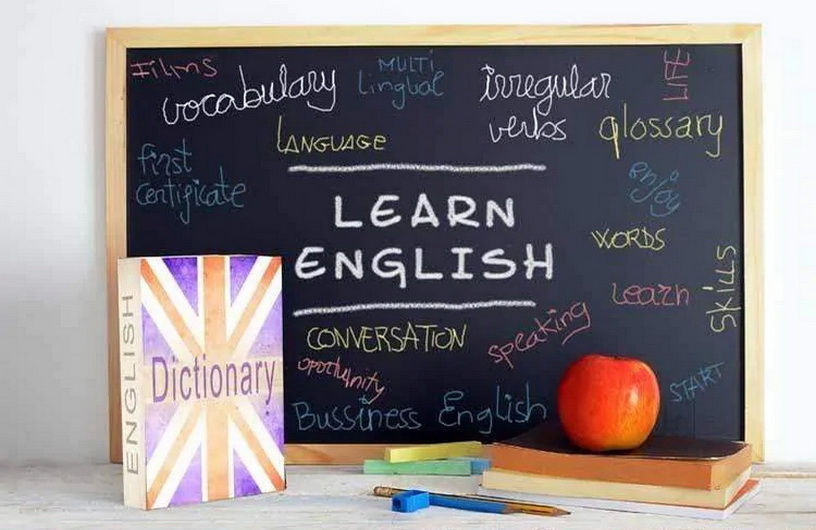 Films
vocabulary
MULTI
lingual
irregular
verbs
FUN
LANGUAGE
glossary
first
certificate
enjoy
LEARN
ENGLISH
WORDS
learn
skills
CONVERSATION
speaking
oportunity
START
Bussiness English
ENGLISH
Dictionary